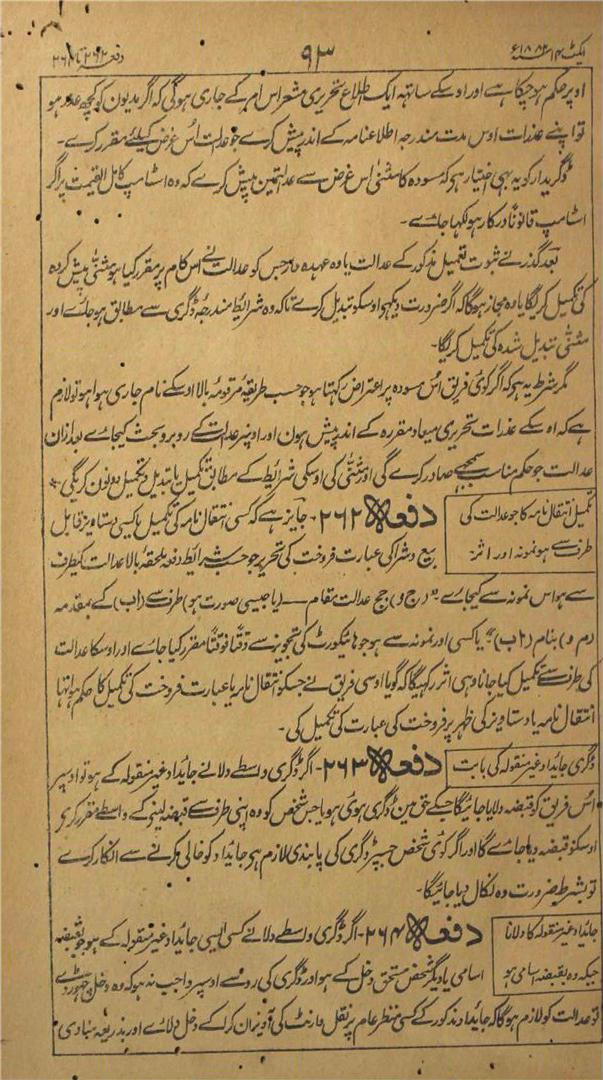 ایکٹ ۱۴ ۱۸۸۲ء
۹۳
دفعہ ۲۶۲ تا ۲۶۴
اوپر حکم ہو چکا ہے اور اوسکے ساتہہ ایک اطلاع تحریری مشعر اس امر کے جاری ہوگی کہ اگر مدیون کو کچھ عذر ہو
تو اپنے عذرات اوس مدت مندرجہ اطلاعنامہ کے اندر پیش کرے جو عدالت اُس غرض کیلئے مقرر کرے۔
ڈگریدار کو یہ بہی اختیار ہو کہ مسودہ کا مثنیٰ اس غرض سے عدالت مین پیش کرے کہ وہ اسٹامپ کامل القیمت پر اگر
اسٹامپ قانوناً درکار ہو لکھا جاے۔
بعد گذرنے ثبوت تعمیل مذکور کے عدالت یا وہ عہدہ دار جس کو عدالت نے اس کام پر مقرر کیا ہو مثنیٰ پیش کردہ
کی تکمیل کریگا یا وہ مجاز ہوگا کہ اگر ضرورت دیکہی اوسکو تبدیل کرے تاکہ وہ شرایط مندرجہ ڈگری سے مطابق ہو جاے اور
مثنیٰ تبدیل شدہ کی تکمیل کریگا۔
مگر شرط یہ ہو کہ اگر کوئی فریق اُس مسودہ پر اعتراض رکہتا ہو جو حسب طریقہ مرقومہ بالا اوسکے نام جاری ہوا ہو تو لازم
ہے کہ اوسکے عذرات تحریری میعاد مقررہ کے اندر پیش ہون اور اونپر عدالت کے روبرو بحث کیجاے بعد ازان
عدالت جو حکم مناسب سمجھے صادر کرے گی اور مثنیٰ کی اوسکی شرایط کے مطابق تکمیل یا تبدیل و تکمیل دونون کریگی
تکمیل انتقال نامہ کا جو عدالت کی
طرف سے ہو نمونہ اور اثر۔
دفعہ ۲۶۲۔ جایز ہے کہ کسی انتقال نامہ کی تکمیل یا کسی دستاویز قابل
بیع و شرا کی عبارت فروخت کی تحریر جو حسب شرایط دفعہ ملحقہ بالا عدالت کیطرف
سے ہو اس نمونہ سے کیجاے۔ "(ج و) جج عدالت مقام — (یا جیسی صورت ہو) طرف سے (اب) کے بمقدمہ
(م و) بنام (اب)" یا کسی اور نمونہ سے ہو جو ہائیکورٹ کی تجویز سے وقتاً فوقتاً مقرر کیا جاے اور اوسکا عدالت
کی طرف سے تکمیل کیا جانا وہی اثر رکہیگا کہ گویا اوسی فریق نے جسکو انتقال نامہ یا عبارت فروخت کی تکمیل کا حکم ہوا تہا
انتقال نامہ یا دستاویز کی ظہر پر فروخت کی عبارت کی تکمیل کی۔
ڈگری جایداد غیر منقولہ کی بابت
دفعہ ۲۶۳۔ اگر ڈگری واسطے دلانے جایداد غیر منقولہ کے ہو تو اوسپر
اُس فریق کو قبضہ دلایا جائیگا جسکے حق مین ڈگری ہوئی ہو یا جس شخص کو وہ اپنی طرف سے قبضہ لینے کے واسطے مقرر کرے
اوسکو قبضہ دیا جاے گا اور اگر کوئی شخص جسپر ڈگری کی پابندی لازم ہو جایداد کو خالی کرنے سے انکار کرے
تو بشرط ضرورت وہ نکال دیا جائیگا۔
جایداد غیر منقولہ کا دلانا
جبکہ وہ بقبضہ اسامی ہو
دفعہ ۲۶۴۔ اگر ڈگری واسطے دلانے کسی ایسی جایداد غیر منقولہ کے ہو جو بقبضہ
اسامی یا دیگر شخص مستحق دخل کے ہو اور ڈگری کی رو سے اوسپر واجب نہ ہو کہ وہ دخل چھوڑ دے
تو عدالت کو لازم ہوگا کہ جایداد مذکور کے کسی منظر عام پر نقل وارنٹ کی آویزان کرا کے دخل دلاے اور بذریعہ منادی